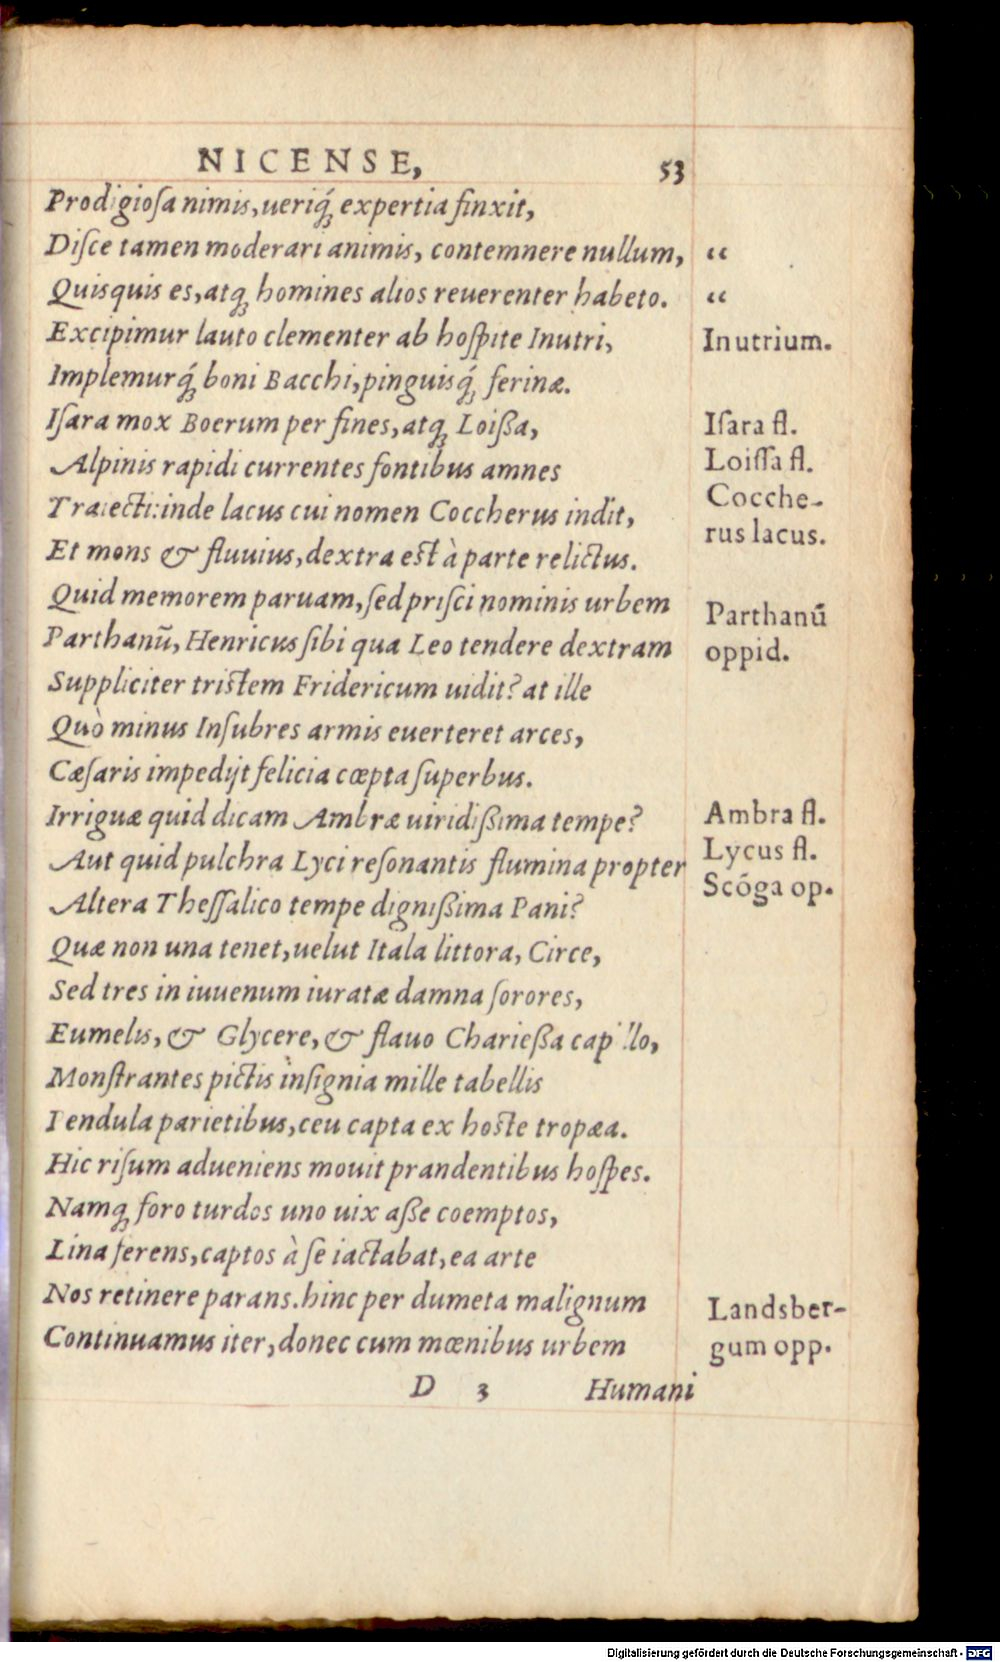 NICENSE, 53
Prodigiosa nimis, ueriq́; expertia finxit,
Disce tamen moderari animis, contemnere nullum, “
Quisquis es, atq; homines alios reuerenter habeto. “
Excipimur lauto clementer ab hospite Inutri, Inutrium.
Implemurq́; boni Bacchi, pinguisq́; ferinæ.
Isara mox Boerum per fines, atq; Loißa, Isara fl.
Alpinis rapidi currentes fontibus amnes Loissa fl.
Traiecti: inde lacus cui nomen Coccherus indit, Cocche-
rus lacus.
Et mons & fluuius, dextra est à parte relictus.
Quid memorem paruam, sed prisci nominis urbem
Parthanū oppid.
Parthanū, Henricus sibi qua Leo tendere dextram
Suppliciter tristem Fridericum uidit? at ille
Quò minus Insubres armis euerteret arces,
Cæsaris impedijt felicia cœpta superbus.
Irriguæ quid dicam Ambræ uiridißima tempe? Ambra fl.
Aut quid pulchra Lyci resonantis flumina propter Lycus fl.
Altera Thessalico tempe dignißima Pani? Scōga op.
Quæ non una tenet, uelut Itala littora, Circe,
Sed tres in iuuenum iuratæ damna sorores,
Eumelis, & Glycere, & flauo Charießa capillo,
Monstrantes pictis insignia mille tabellis
Pendula parietibus, ceu capta ex hoste tropæa.
Hic risum adueniens mouit prandentibus hospes.
Namq; foro turdos uno uix aße coemptos,
Lina ferens, captos à se iactabat, ea arte
Nos retinere parans. hinc per dumeta malignum Landsber-
Continuamus iter, donec cum mœnibus urbem gum opp.
D 3 Humani
Digitalisierung gefördert durch die Deutsche Forschungsgemeinschaft - DFG